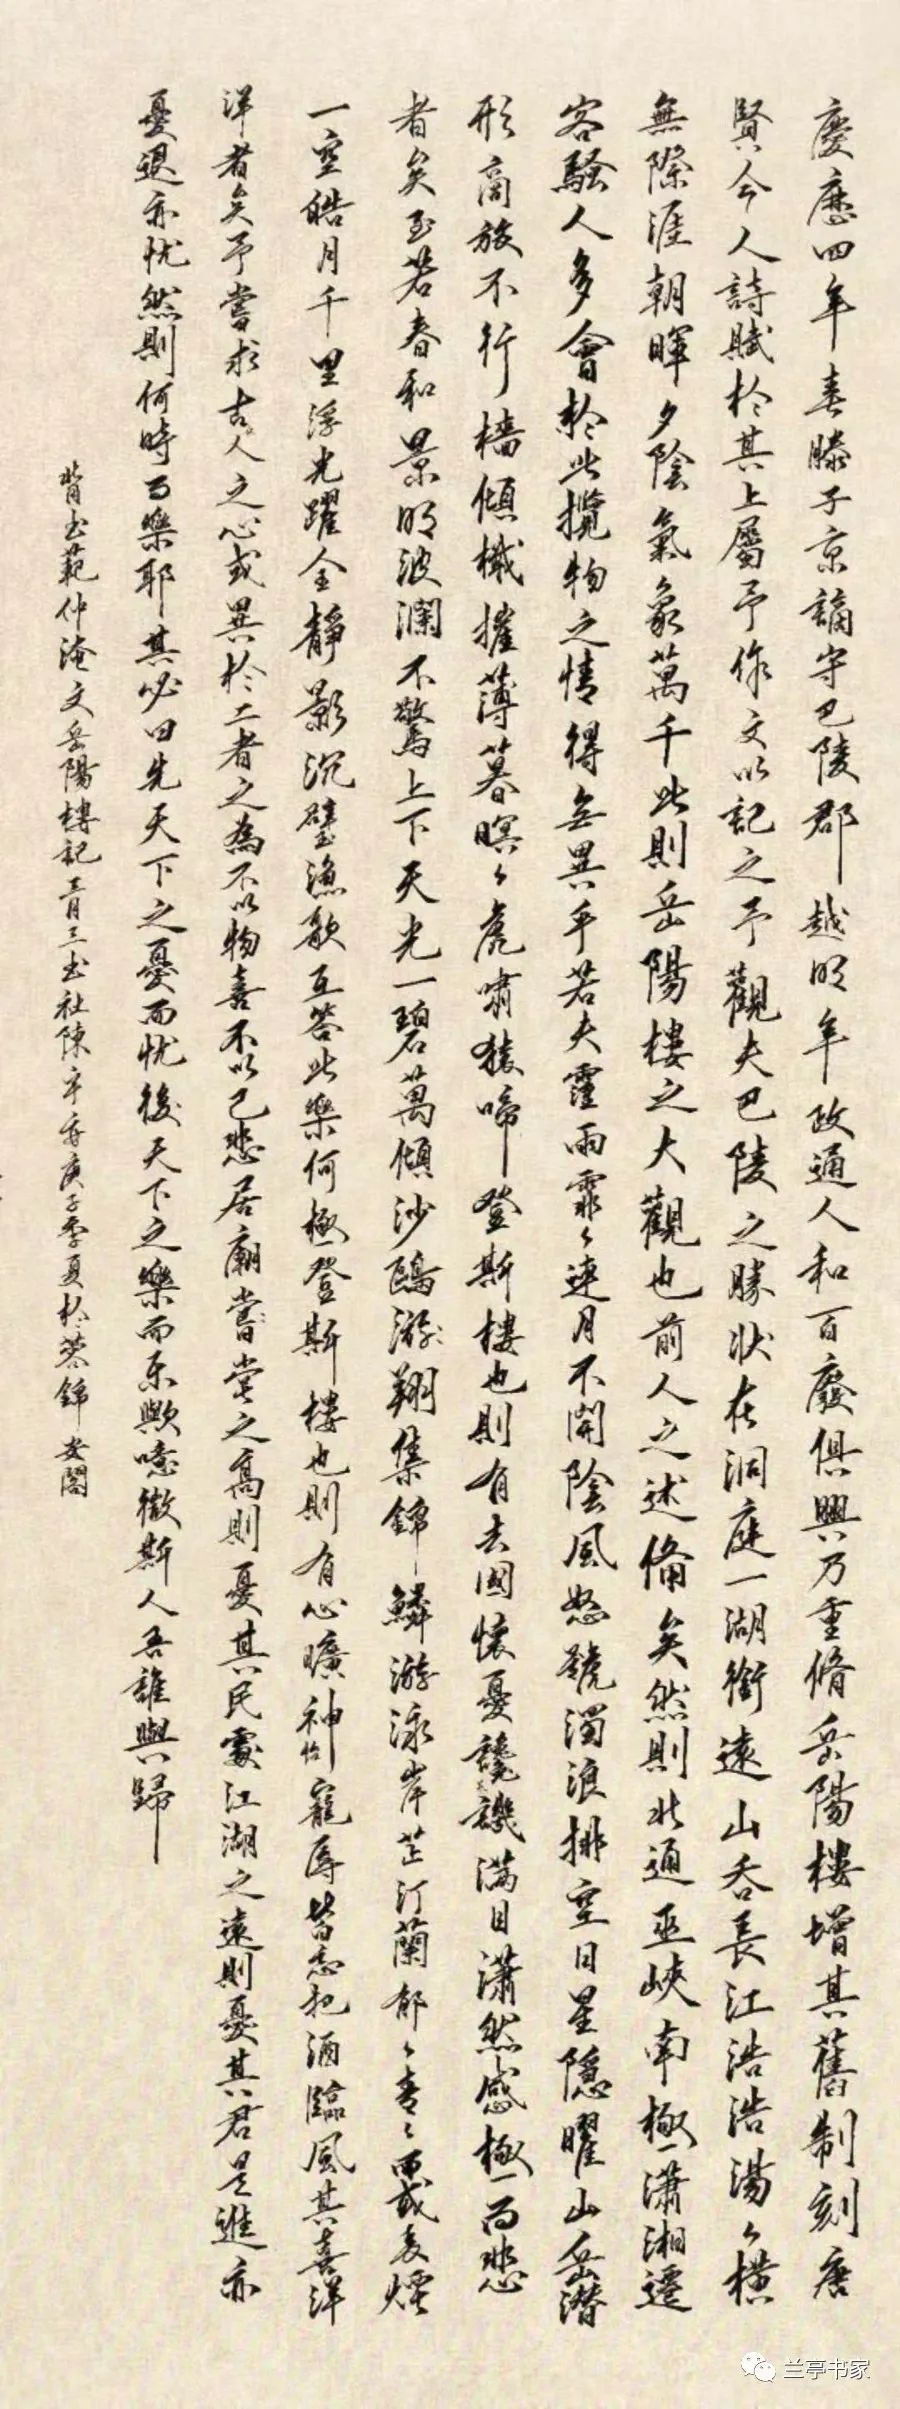 慶曆四年春滕子京謫守巴陵郡越明年政通人和百廢俱興乃重脩岳陽樓增其舊制刻唐
賢今人詩賦於其上屬予作文以記之予觀夫巴陵之勝狀在洞庭一湖銜遠山吞長江浩浩湯々橫
無際涯朝暉夕陰氣象萬千此則岳陽樓之大觀也前人之述備矣然則北通巫峽南極瀟湘遷
客騷人多會於此攬物之情得無異乎若夫霪雨霏々連月不開陰風怒號濁浪排空日星隱曜山岳潛
形商旅不行檣傾檝摧薄暮暝々虎嘯猿啼登斯樓也則有去國懷憂讒譏滿目瀟然感極而悲
者矣至若春和景明波瀾不驚上下天光一碧萬傾沙鷗游翔集錦鱗游泳岸芷汀蘭郁々青々而或長煙
一空皓月千里浮光躍金靜影沉璧漁歌互答此樂何極登斯樓也則有心曠神怡寵辱皆忘把酒臨風其喜洋
洋者矣予嘗求古人之心或異於二者之為不以物喜不以己悲居廟嘗堂之高則憂其民處江湖之遠則憂其君是進亦
憂退亦忧然則何時而樂耶其必曰先天下之憂而忧後天下之樂而乐歟噫微斯人吾誰與歸
背书範仲淹文岳陽樓記三月三书社陳庚子季夏於蓉錦安閣
兰亭书家